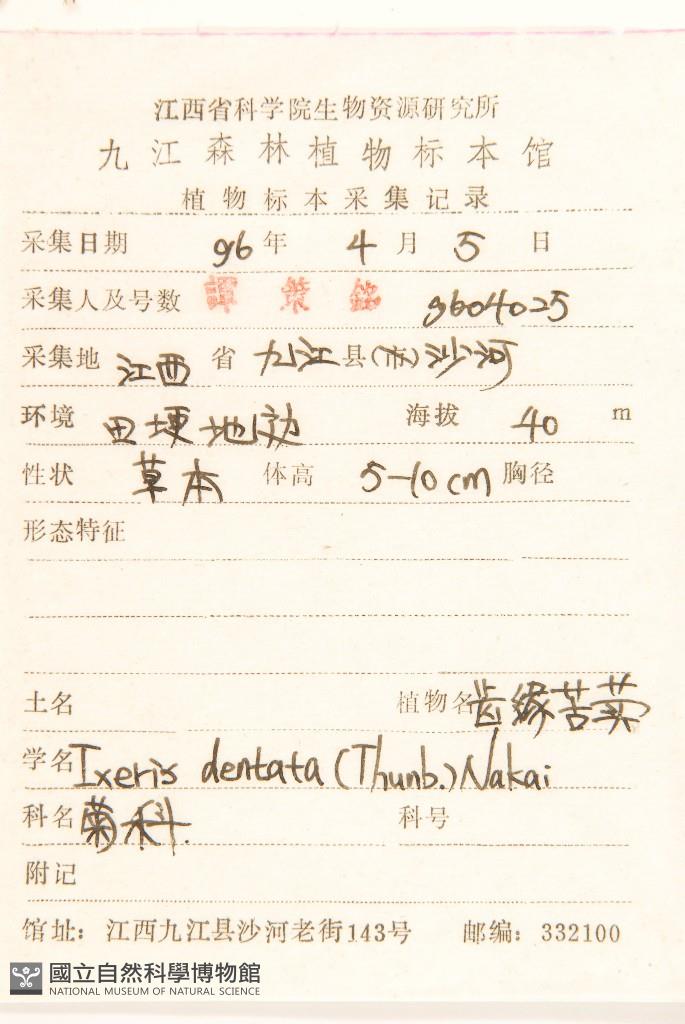 江西省科学院生物资源研究所
九江森林植物标本馆
植物标本采集记录
采集日期 96 年 4 月 5 日
采集人及号数 譚策銘 9604025
采集地 江西 省 九江 县(市) 沙河
环境 田埂地边 海拔 40 m
性状 草本 体高 5-10cm 胸径
形态特征
土名 植物名 齿缘苦荬
学名 Ixeris dentata (Thunb.) Nakai
科名 菊科 科号
附记
馆址：江西九江县沙河老街143号 邮编：332100
國立自然科學博物館
NATIONAL MUSEUM OF NATURAL SCIENCE